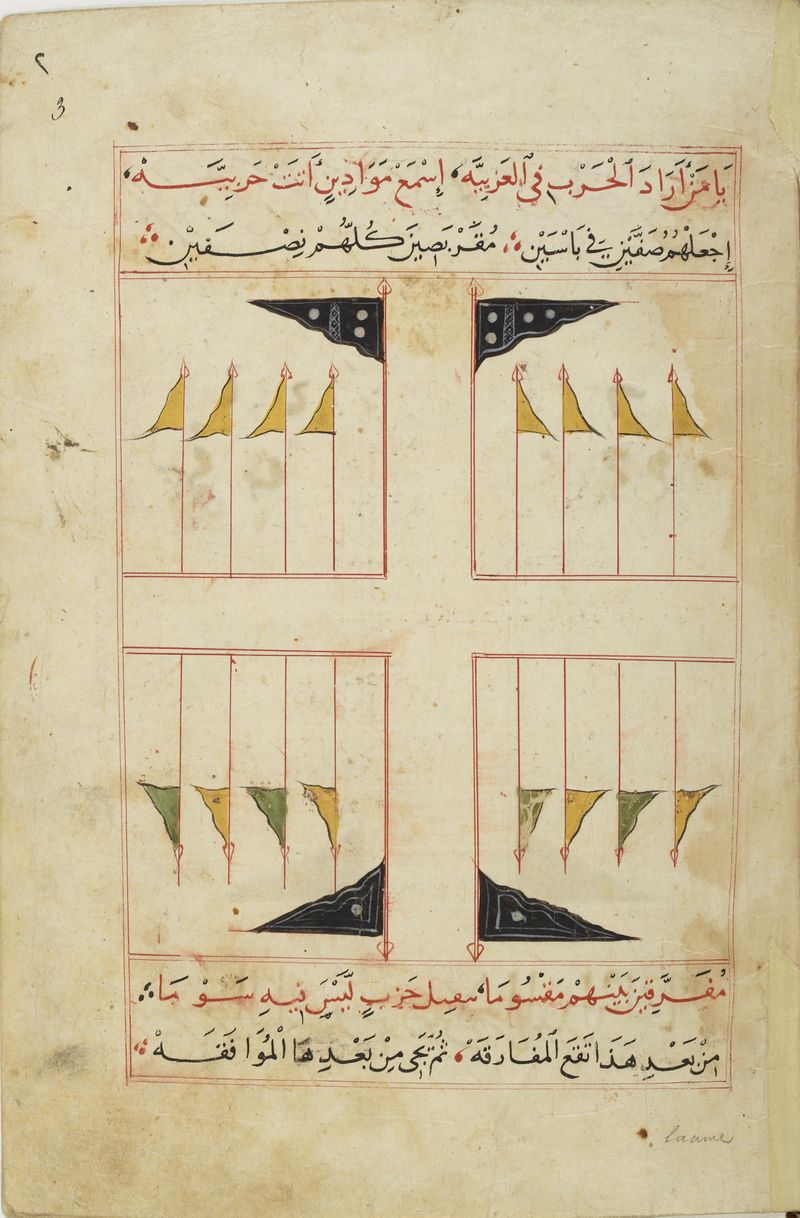 ٢
3
يَا مَنْ أَرَادَ الْحَرْبِ فِي الْعَزِيبَّه، إِسْمَعْ مَوَادِينٍ أَتَتْ حَرْبِيَّه،
إِجْعَلْهُمُ صَفَّيْنِ فِي بَاسَيْنِ، مُقَرْبَصِينَ كُلَّهُمْ نِصْفَيْنِ
مُفَرَّقِينَ بَيْنَهُمْ مَقْسُومَا، حَرْبٍ لَيْسَ فِيهِ سَوْمَا
مِنْ بَعْدِ هَذَا تَقَعَ الْمُفَارَقَهْ، ثُمَّ تَجِى مِنْ بَعْدِهَا الْمُوَافَقَهْ